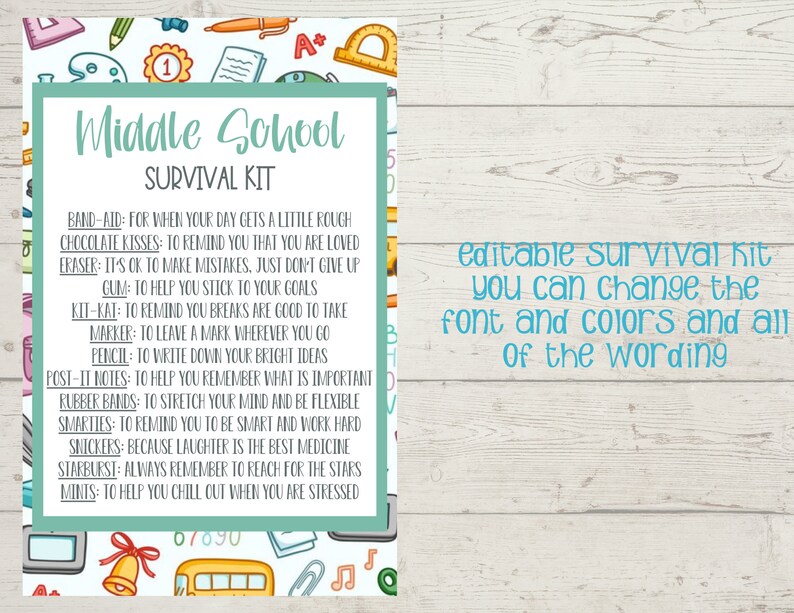 A+
1
Middle School
SURVIVAL KIT
BAND-AID: FOR WHEN YOUR DAY GETS A LITTLE ROUGH
CHOCOLATE KISSES: TO REMIND YOU THAT YOU ARE LOVED
ERASER: IT'S OK TO MAKE MISTAKES, JUST DON'T GIVE UP
GUM: TO HELP YOU STICK TO YOUR GOALS
KIT-KAT: TO REMIND YOU BREAKS ARE GOOD TO TAKE
MARKER: TO LEAVE A MARK WHEREVER YOU GO
PENCIL: TO WRITE DOWN YOUR BRIGHT IDEAS
POST-IT NOTES: TO HELP YOU REMEMBER WHAT IS IMPORTANT
RUBBER BANDS: TO STRETCH YOUR MIND AND BE FLEXIBLE
SMARTIES: TO REMIND YOU TO BE SMART AND WORK HARD
SNICKERS: BECAUSE LAUGHTER IS THE BEST MEDICINE
STARBURST: ALWAYS REMEMBER TO REACH FOR THE STARS
MINTS: TO HELP YOU CHILL OUT WHEN YOU ARE STRESSED
67890
A+
editable survival kit
you can change the
font and colors and all
of the wording